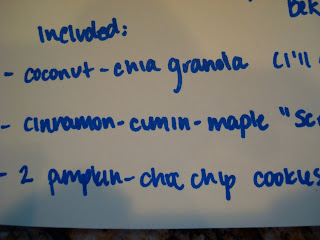 Included:
- coconut-chia granola (I'll
- cinnamon-cumin-maple
- 2 pumpkin-choc chip cookies